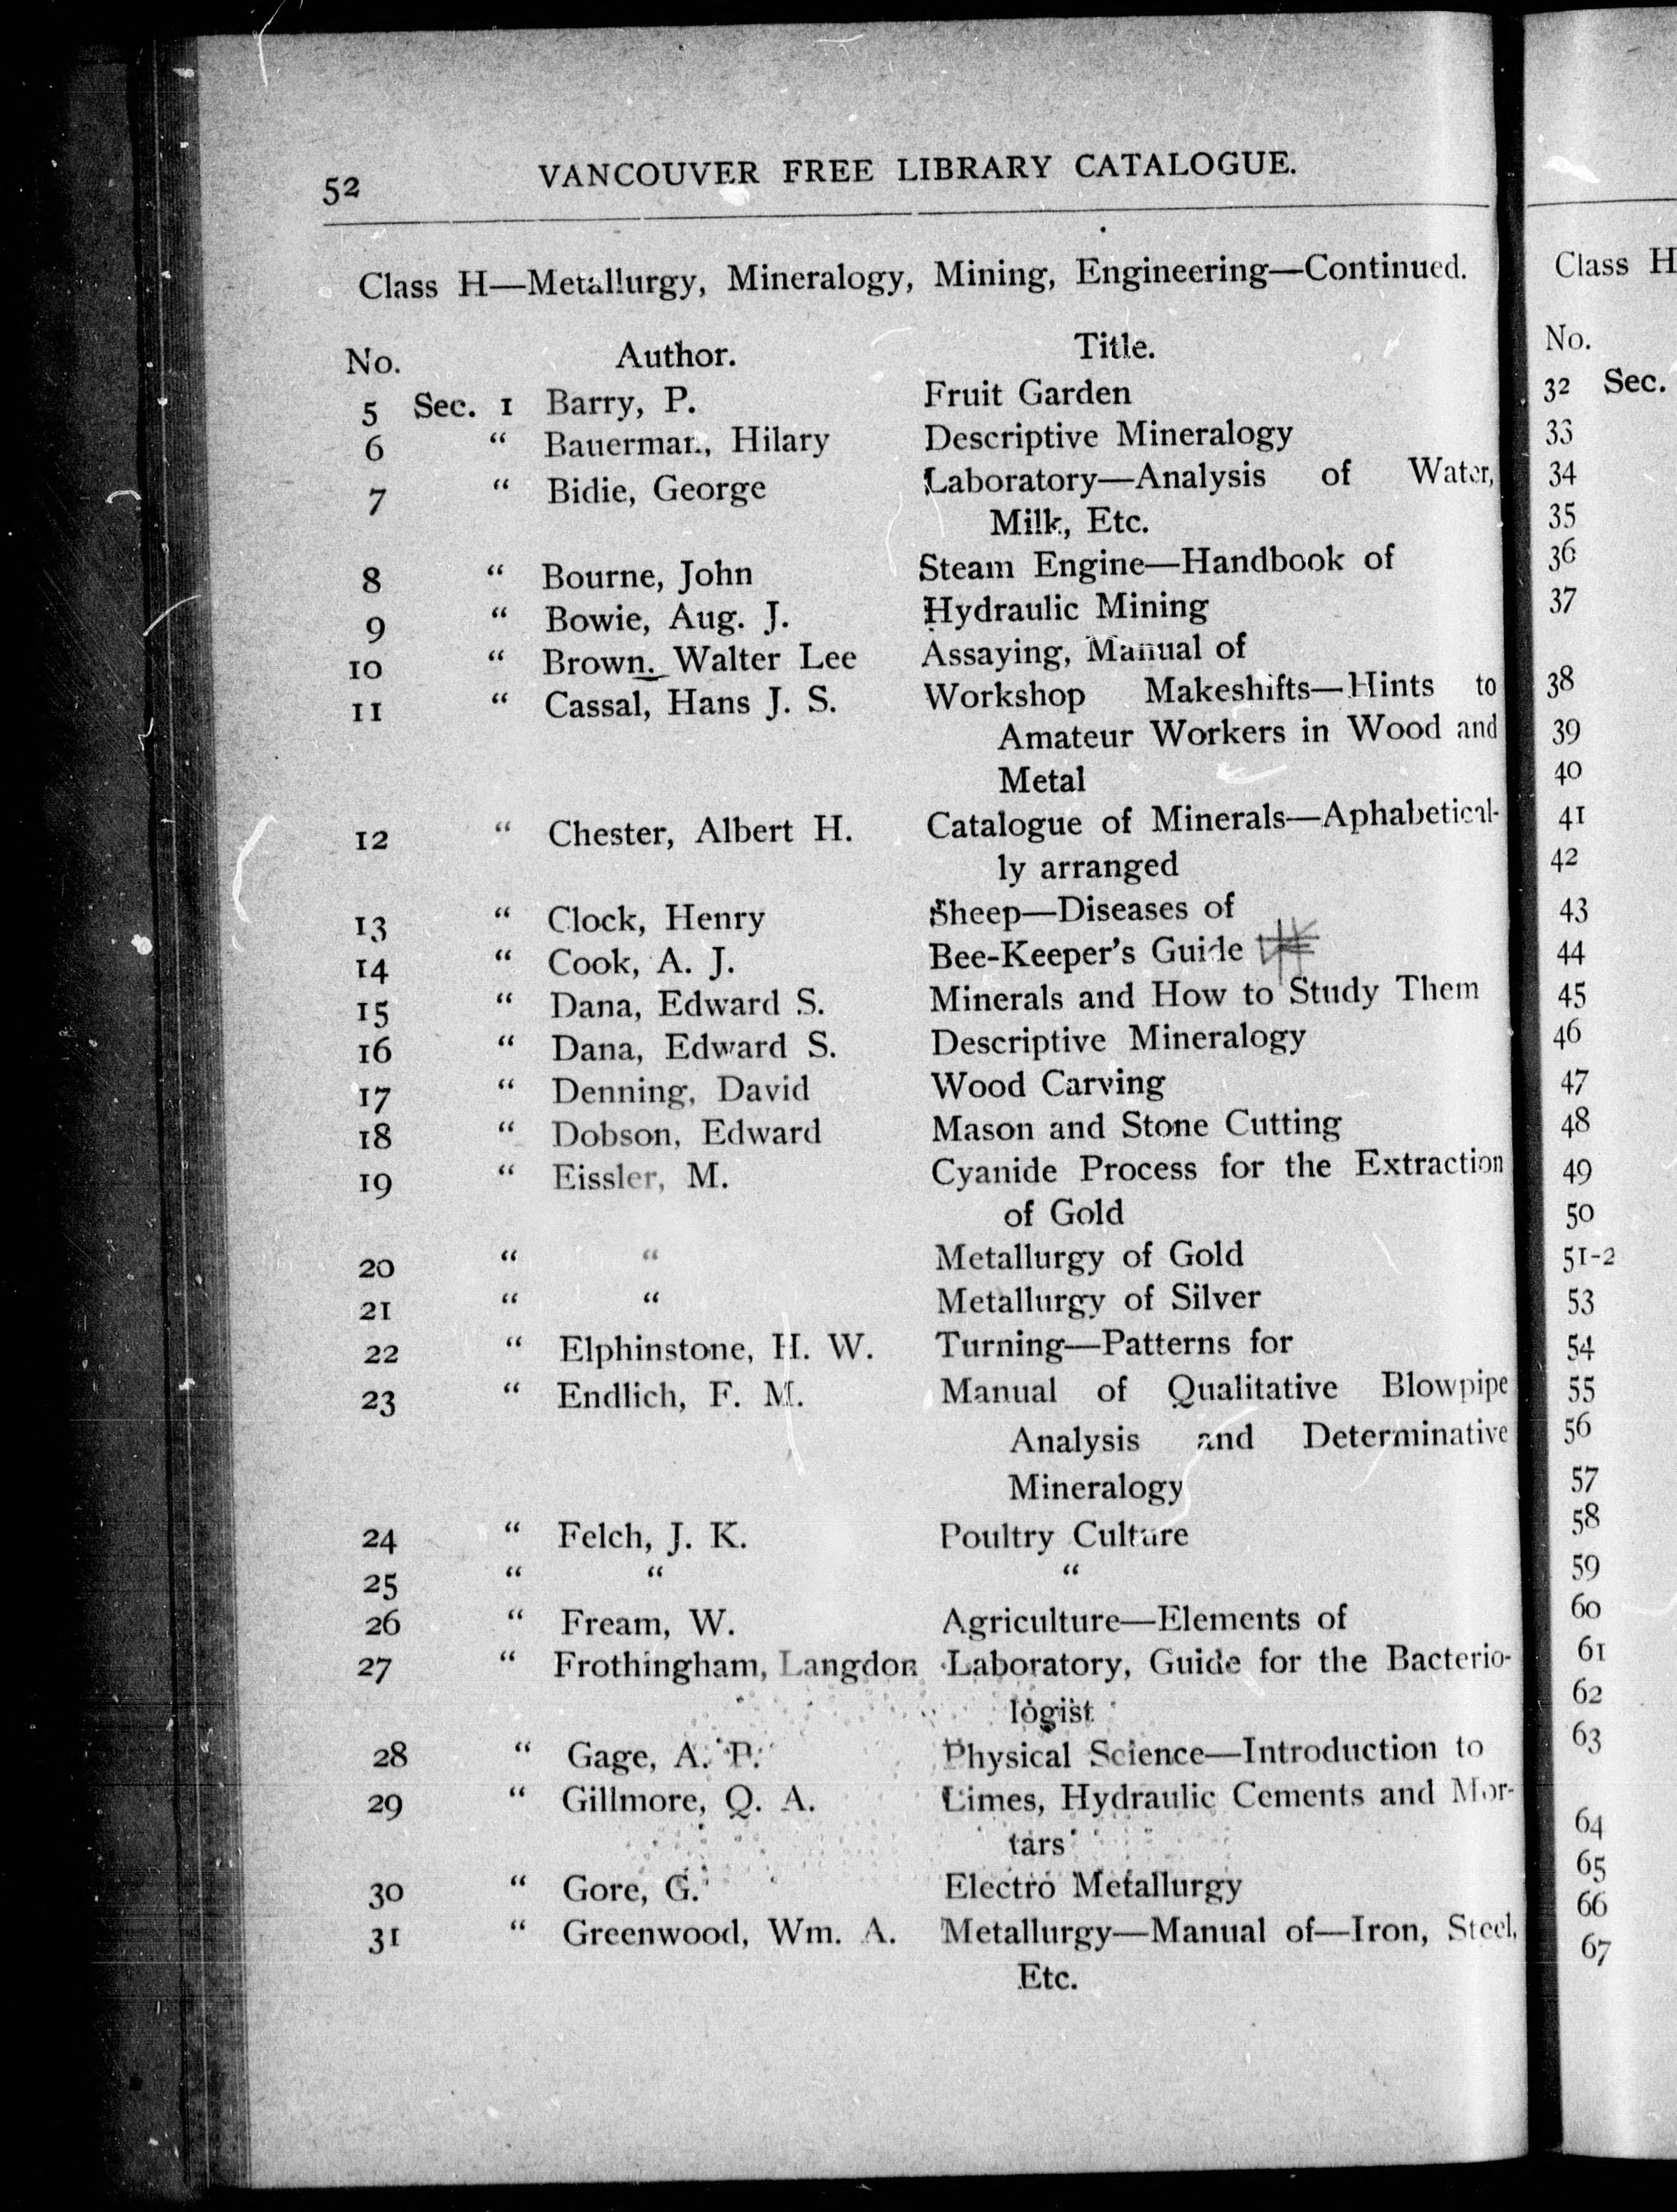 52 VANCOUVER FREE LIBRARY CATALOGUE.
Class H—Metallurgy, Mineralogy, Mining, Engineering—Continued.
No. Author. Title.
5 Sec. 1 Barry, P. Fruit Garden
6 “ Bauerman, Hilary Descriptive Mineralogy
7 “ Bidie, George Laboratory—Analysis of Water,
Milk, Etc.
8 “ Bourne, John Steam Engine—Handbook of
9 “ Bowie, Aug. J. Hydraulic Mining
10 “ Brown. Walter Lee Assaying, Manual of
11 “ Cassal, Hans J. S. Workshop Makeshifts—Hints to
Amateur Workers in Wood and
Metal
12 “ Chester, Albert H. Catalogue of Minerals—Aphabetical-
ly arranged
13 “ Clock, Henry Sheep—Diseases of
14 “ Cook, A. J. Bee-Keeper's Guide
15 “ Dana, Edward S. Minerals and How to Study Them
16 “ Dana, Edward S. Descriptive Mineralogy
17 “ Denning, David Wood Carving
18 “ Dobson, Edward Mason and Stone Cutting
19 “ Eissler, M. Cyanide Process for the Extraction
of Gold
20 “ “ Metallurgy of Gold
21 “ “ Metallurgy of Silver
22 “ Elphinstone, H. W. Turning—Patterns for
23 “ Endlich, F. M. Manual of Qualitative Blowpipe
Analysis and Determinative
Mineralogy
24 “ Felch, J. K. Poultry Culture
25 “ “ “
26 “ Fream, W. Agriculture—Elements of
27 “ Frothingham, Langdon Laboratory, Guide for the Bacterio-
logist
28 “ Gage, A. P. Physical Science—Introduction to
29 “ Gillmore, Q. A. Limes, Hydraulic Cements and Mor-
tars
30 “ Gore, G. Electro Metallurgy
31 “ Greenwood, Wm. A. Metallurgy—Manual of—Iron, Steel,
Etc.
Class H
No.
32 Sec.
33
34
35
36
37
38
39
40
41
42
43
44
45
46
47
48
49
50
51-2
53
54
55
56
57
58
59
60
61
62
63
64
65
66
67